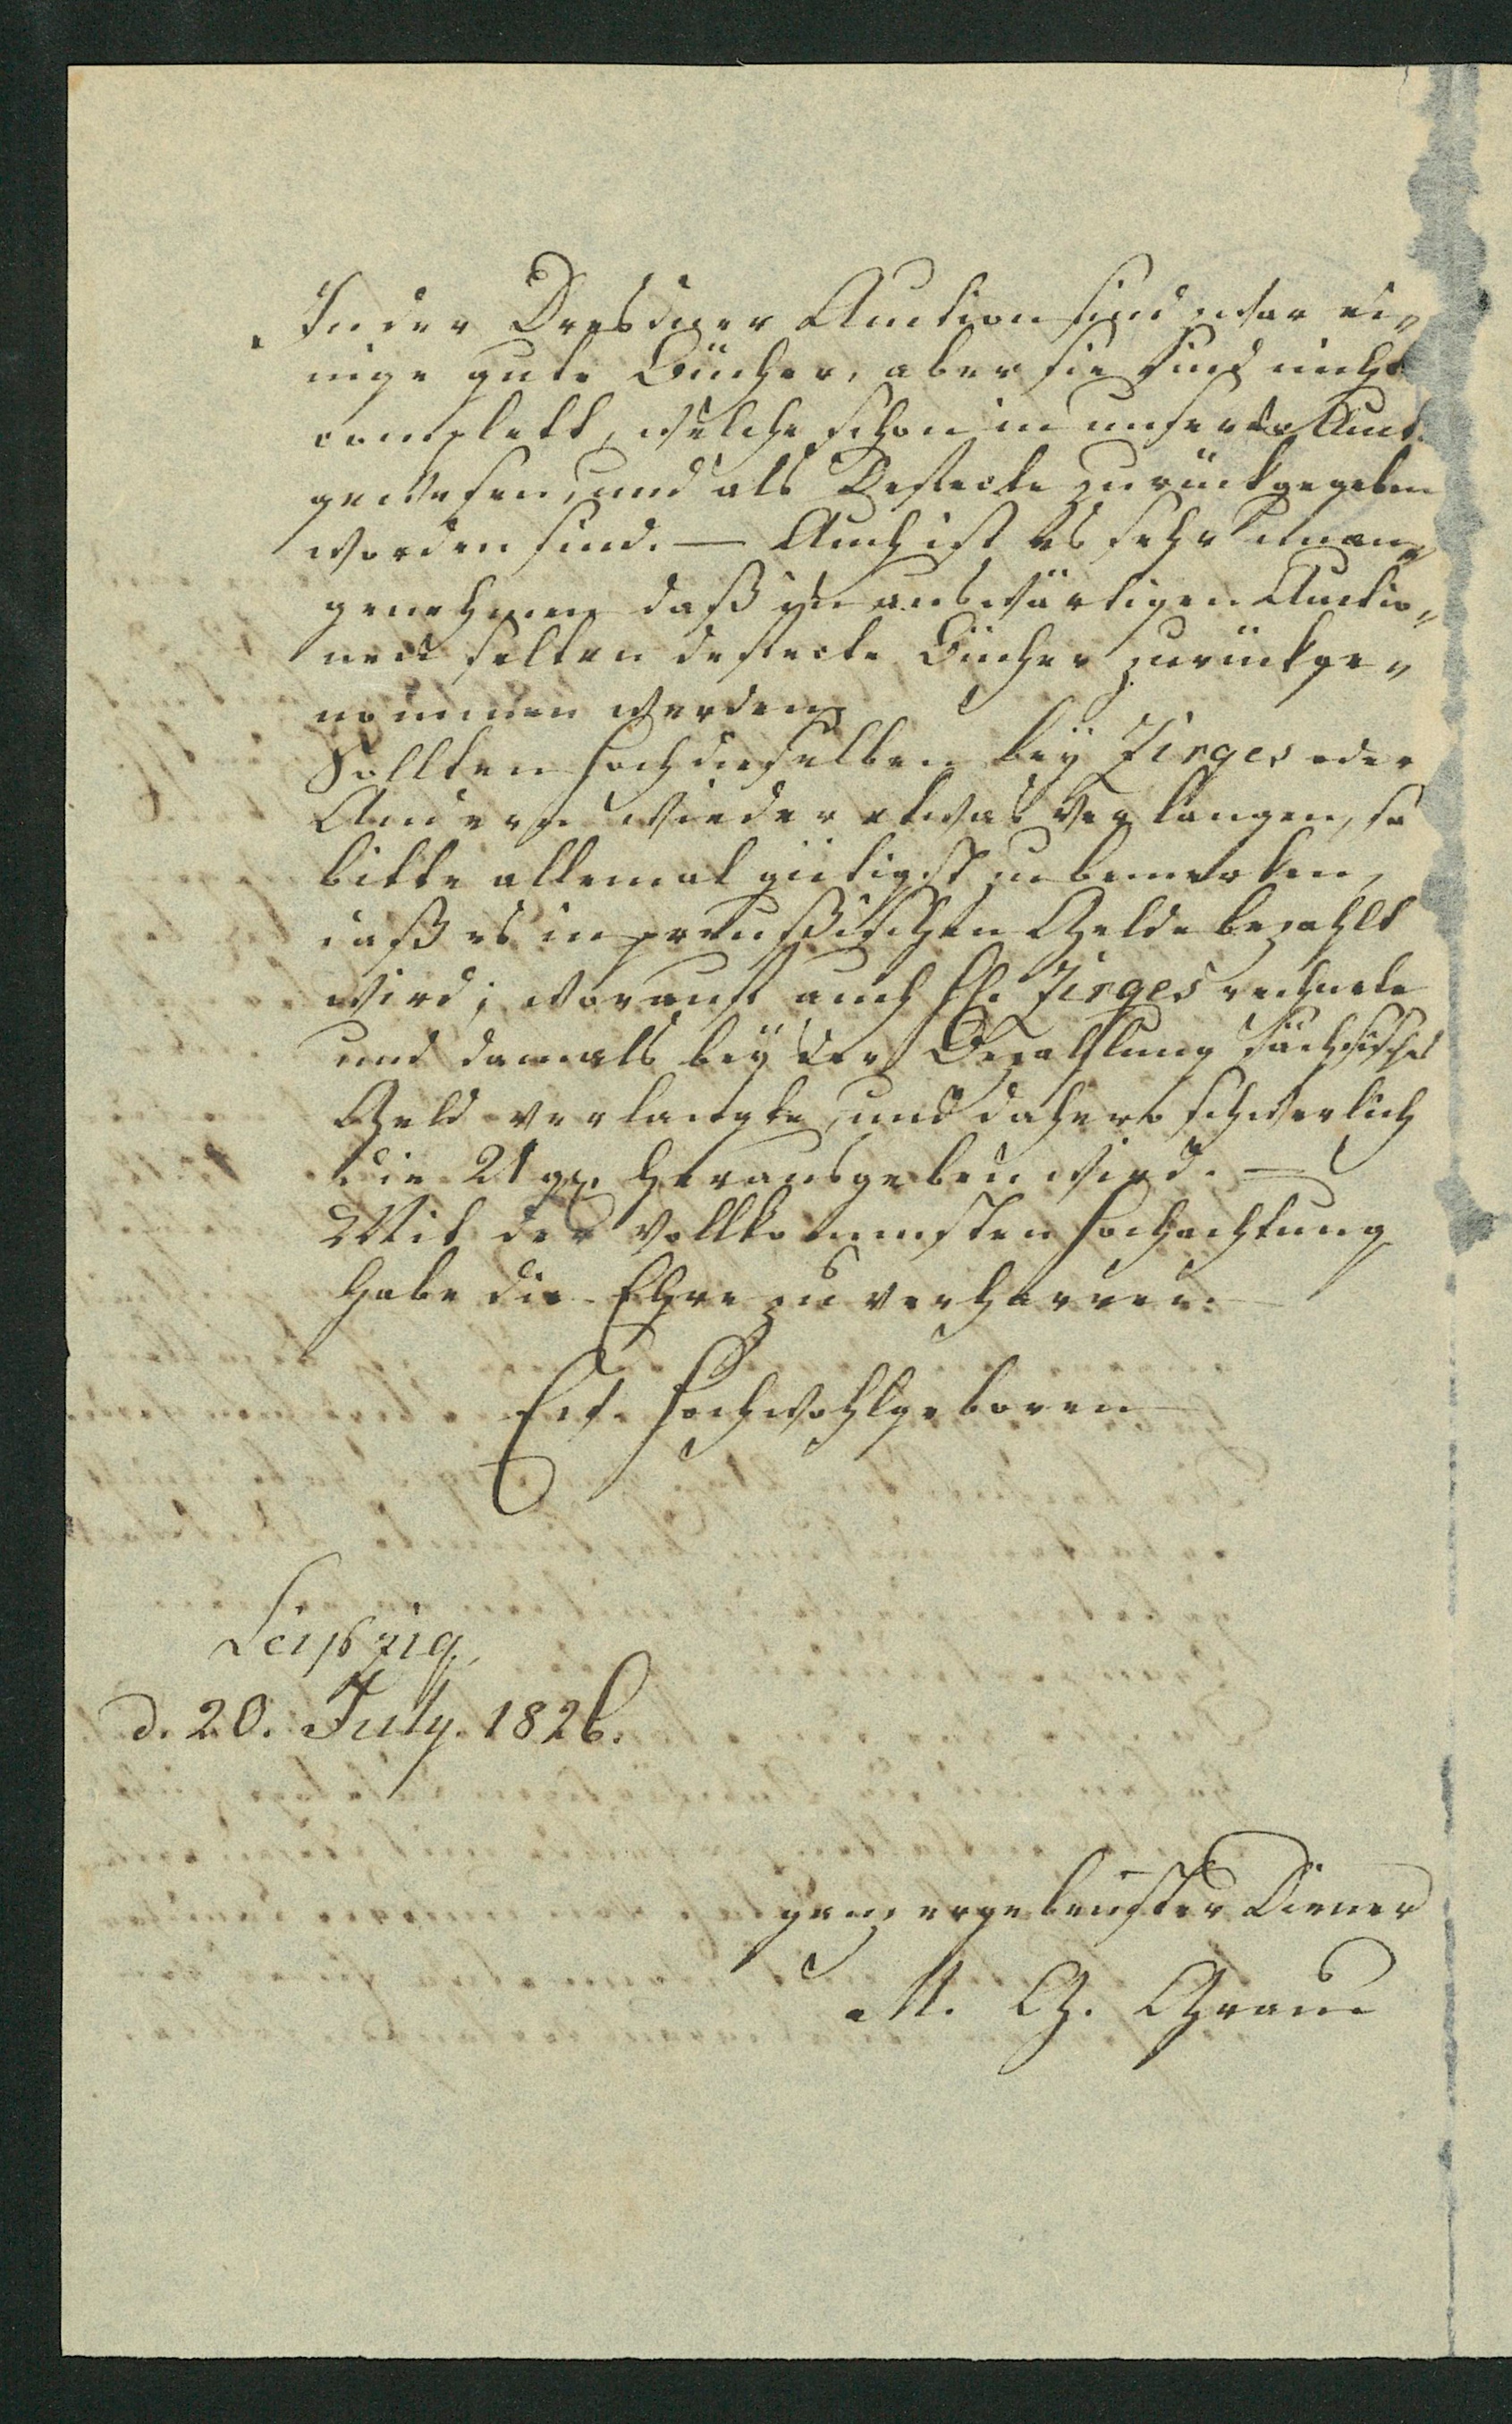 In der Dresdner Auction sind zwar ei-
nige gute Bücher, aber sie sind nicht
complett, welche schon in unserer Auct.
gewesen, und als Defecte zurückgegeben
worden sind. — Auch ist es sehr unan-
genehm, daß in auswärtigen Auctio-
nen selten defecte Bücher zurückge-
nommen werden.
Sollten Hochdieselben bey Zirges oder
Andern wieder etwas verlangen, so
bitte allemal gütigst zu bemerken,
daß es in preußischen Gelde bezahlt
wird; worauf auch H. Zirges rechnete
und damals bey der Bezahlung sächsisches
Geld verlangte, und dahero schwerlich
die 21 gr. herausgeben wird. —
Mit der vollkommensten Hochachtung
habe die Ehre zu verharren.
Ew. Hochwohlgeboren
Leipzig,
d. 20. July. 1826.
ganz ergebenster Diener
M. G. Grau